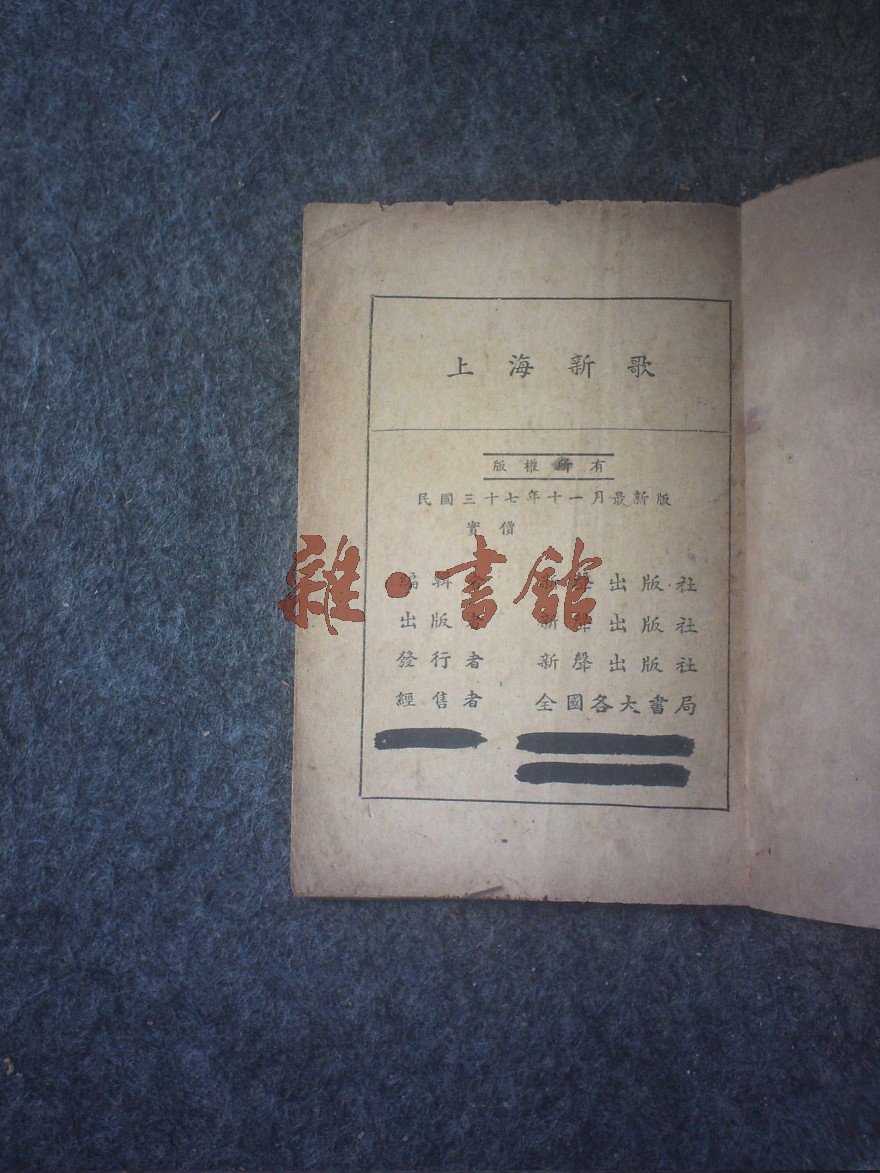 上海新歌
版權所有
民國三十七年十一月最新版
實價
編輯者 新聲出版社
出版者 新聲出版社
發行者 新聲出版社
經售者 全國各大書局
雜·書館